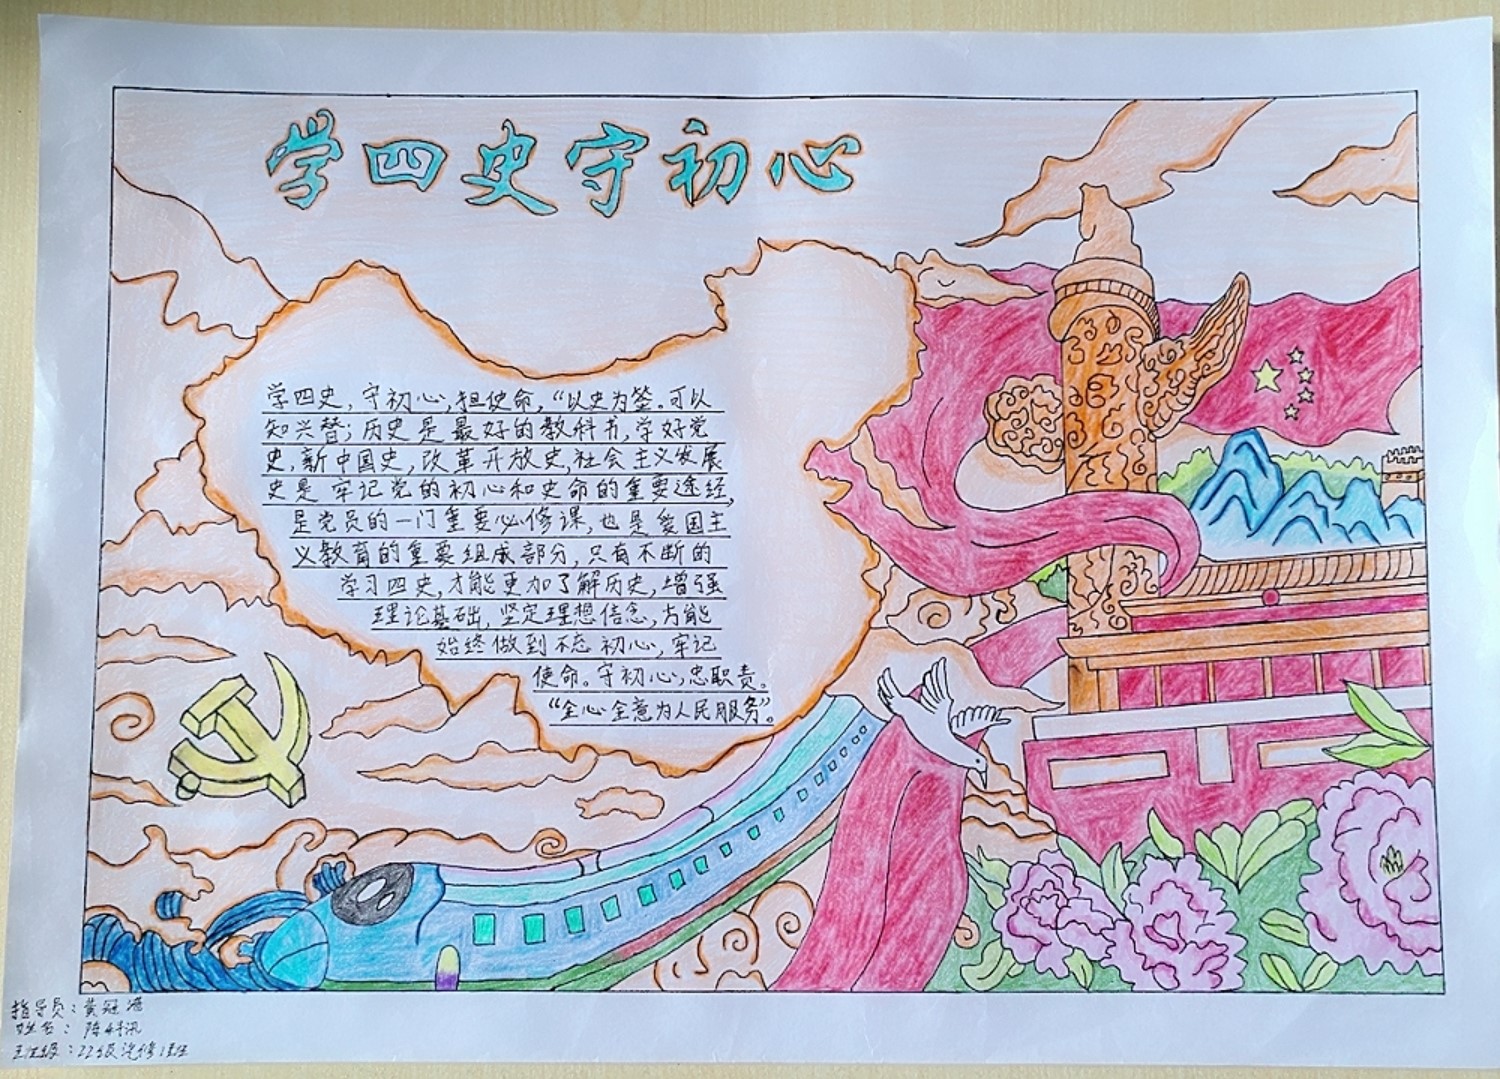 学四史守初心
学四史,守初心,担使命,“以史为鉴。可以
知兴替;历史是最好的教科书,学好党
史,新中国史,改革开放史,社会主义发展
史是牢记党的初心和史命的重要途经,
是党员的一门重要必修课,也是爱国主
义教育的重要组成部分,只有不断的
学习四史,才能更加了解历史,增强
理论基础,坚定理想信念,方能
始终做到不忘初心,牢记
使命。守初心,忠职责。
“全心全意为人民服务”。
指导员:黄冠港
姓名:陈
班级:22级汽修1班